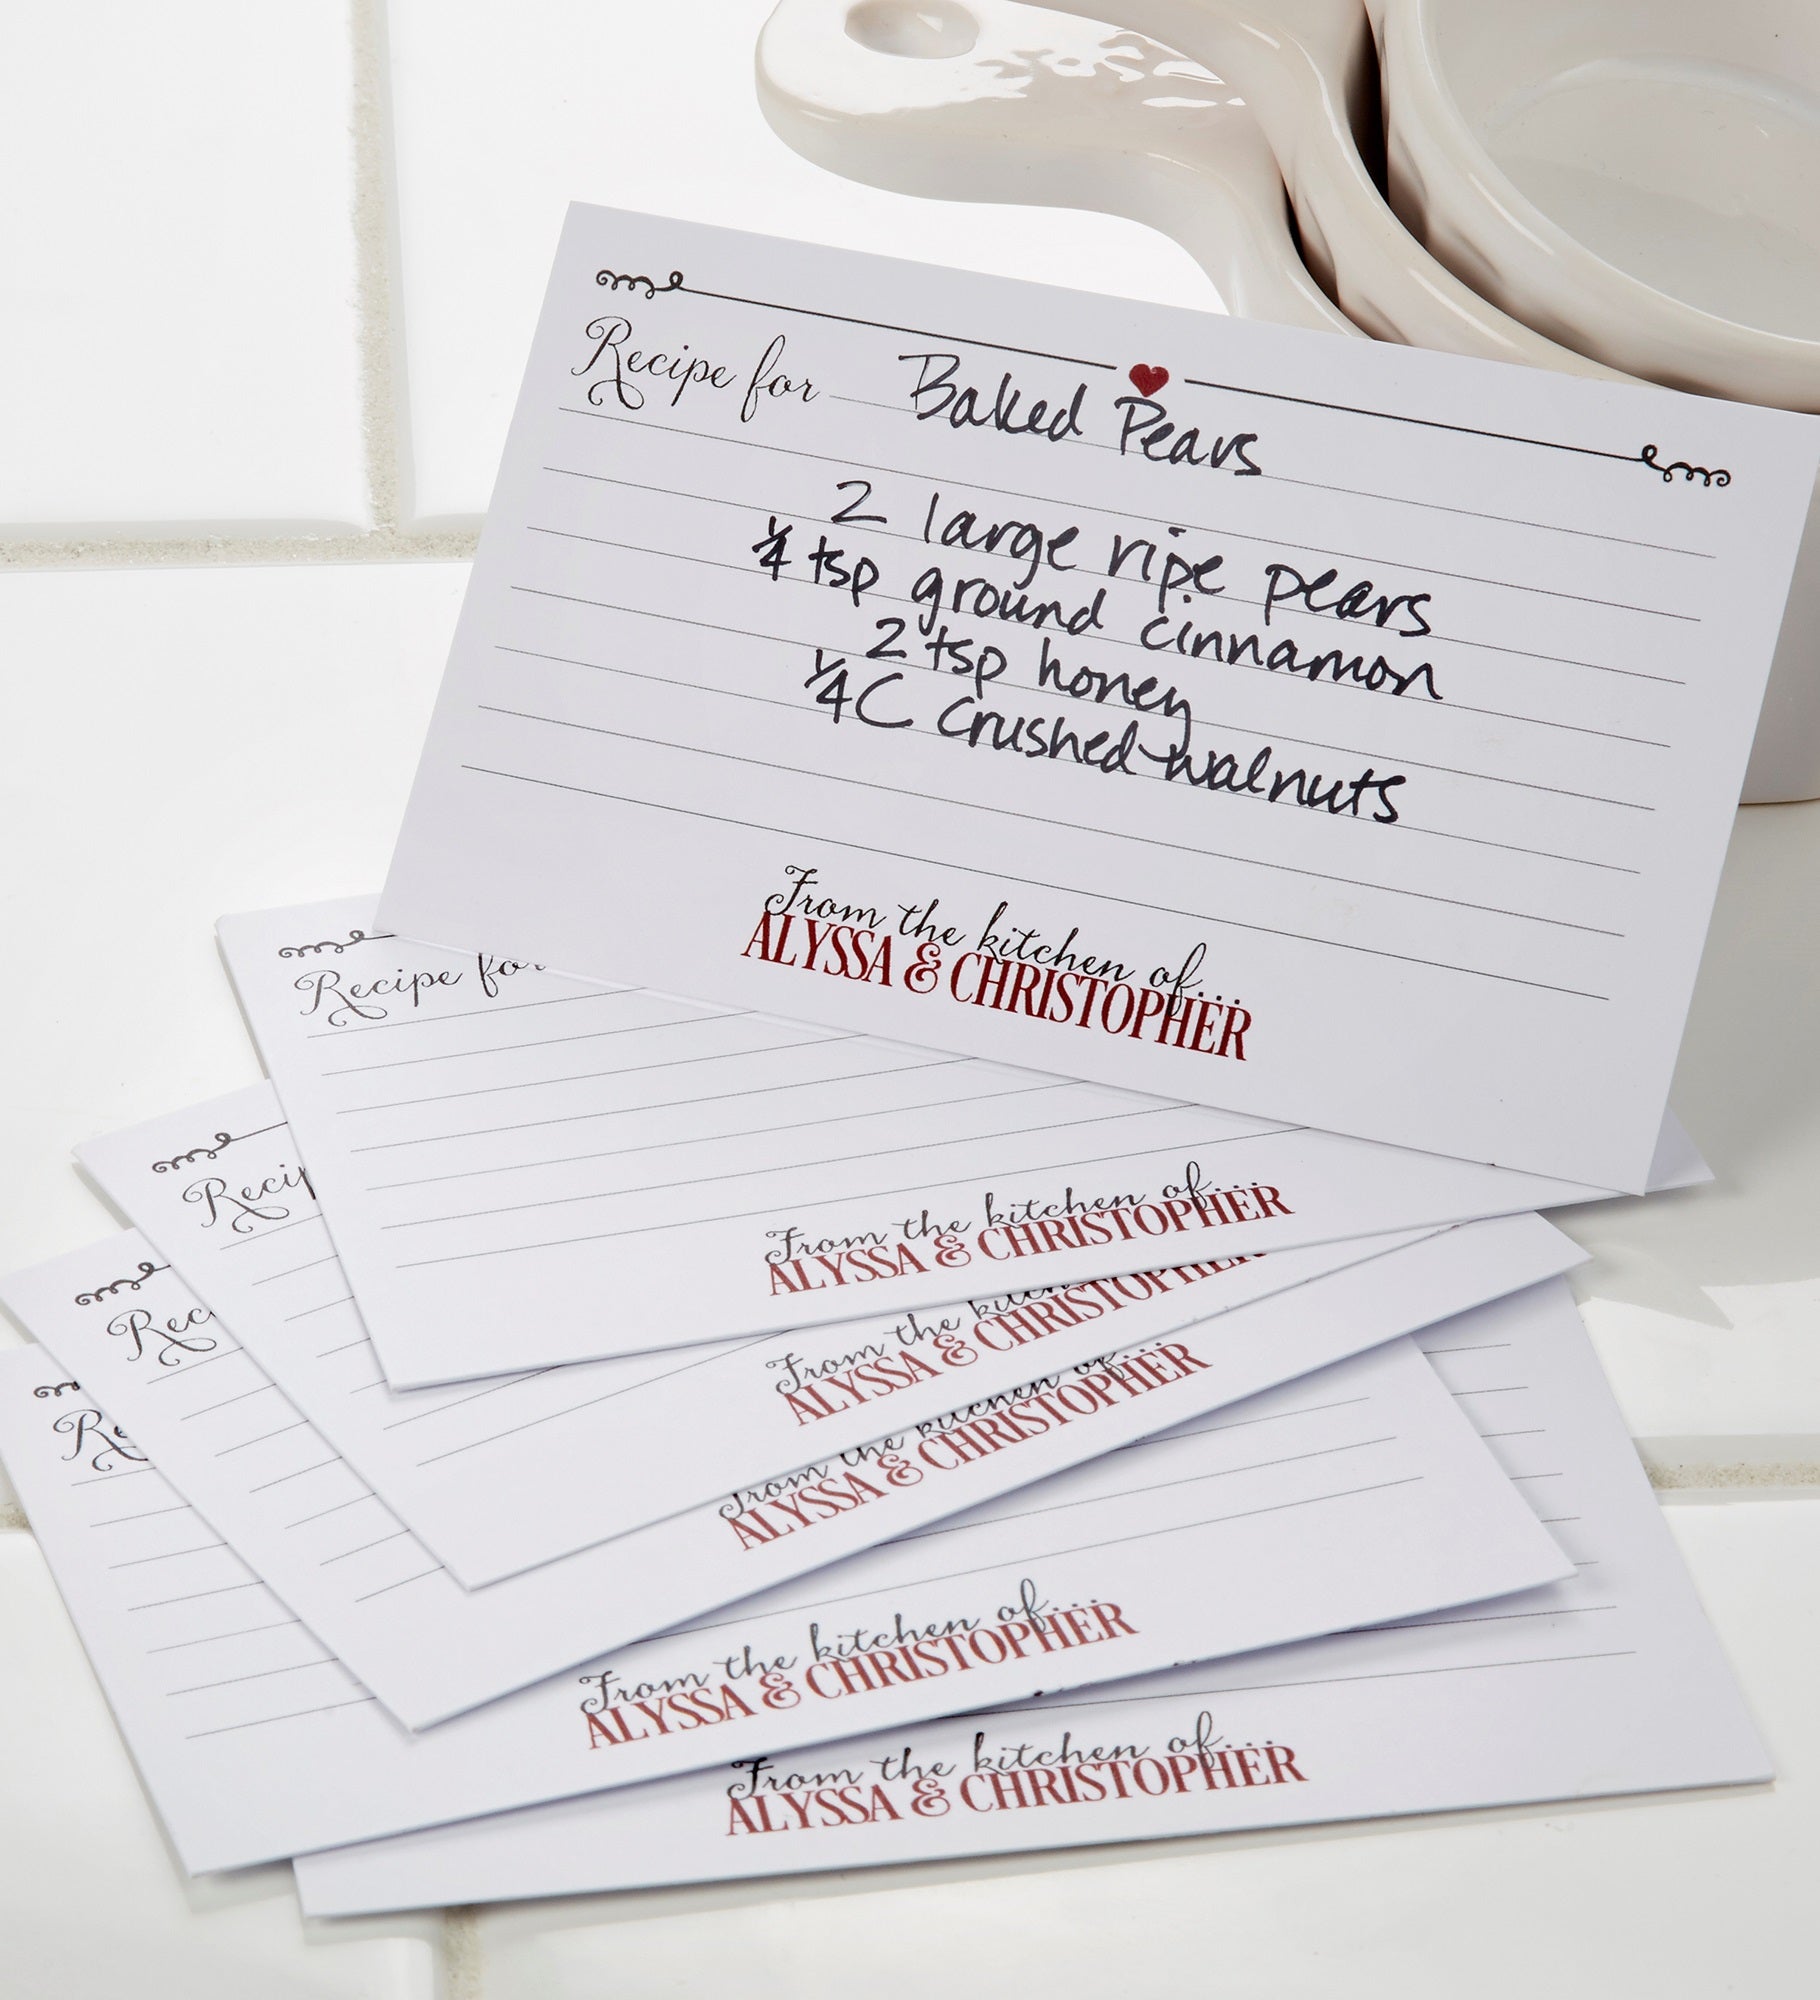 Recipe for Baked Pears
2 large ripe pears
¼ tsp ground cinnamon
2 tsp honey
¼ C crushed walnuts
From the kitchen of...
ALYSSA & CHRISTOPHER
Recipe for
From the kitchen of...
ALYSSA & CHRISTOPHER
Recip
From the kitchen
ALYSSA & CHRISTOPHER
Rec
From the kitchen of...
ALYSSA & CHRISTOPHER
Re
From the kitchen of...
ALYSSA & CHRISTOPHER
From the kitchen of...
ALYSSA & CHRISTOPHER